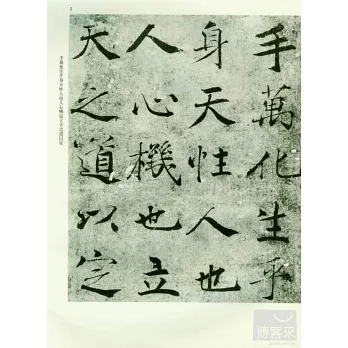 手萬化生乎
身天性人也
人心機也立
天之道以定
手萬化生乎身天性人也人心機也立天之道以定
3
博客來